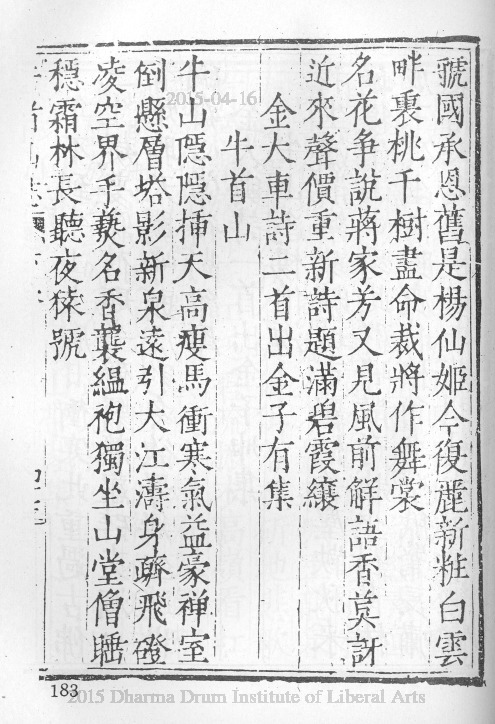 虢國承恩舊是楊仙姬今復麗新粧白雲
畔裏桃千樹盡命裁將作舞裳
名花争說蔣家芳又見風前解語香莫訝
近來聲價重新詩題滿碧霞纕
金大車詩二首出金子有集
牛首山
牛山隱隱揷天高瘦馬衝寒氣益豪禅室
倒懸層塔影新泉遠引大江濤身躋飛磴
凌空界手爇名香襲緼袍獨坐山堂僧睡
穩霜林長聽夜猿號
2015-04-16
183
2015 Dharma Drum Institute of Liberal Arts